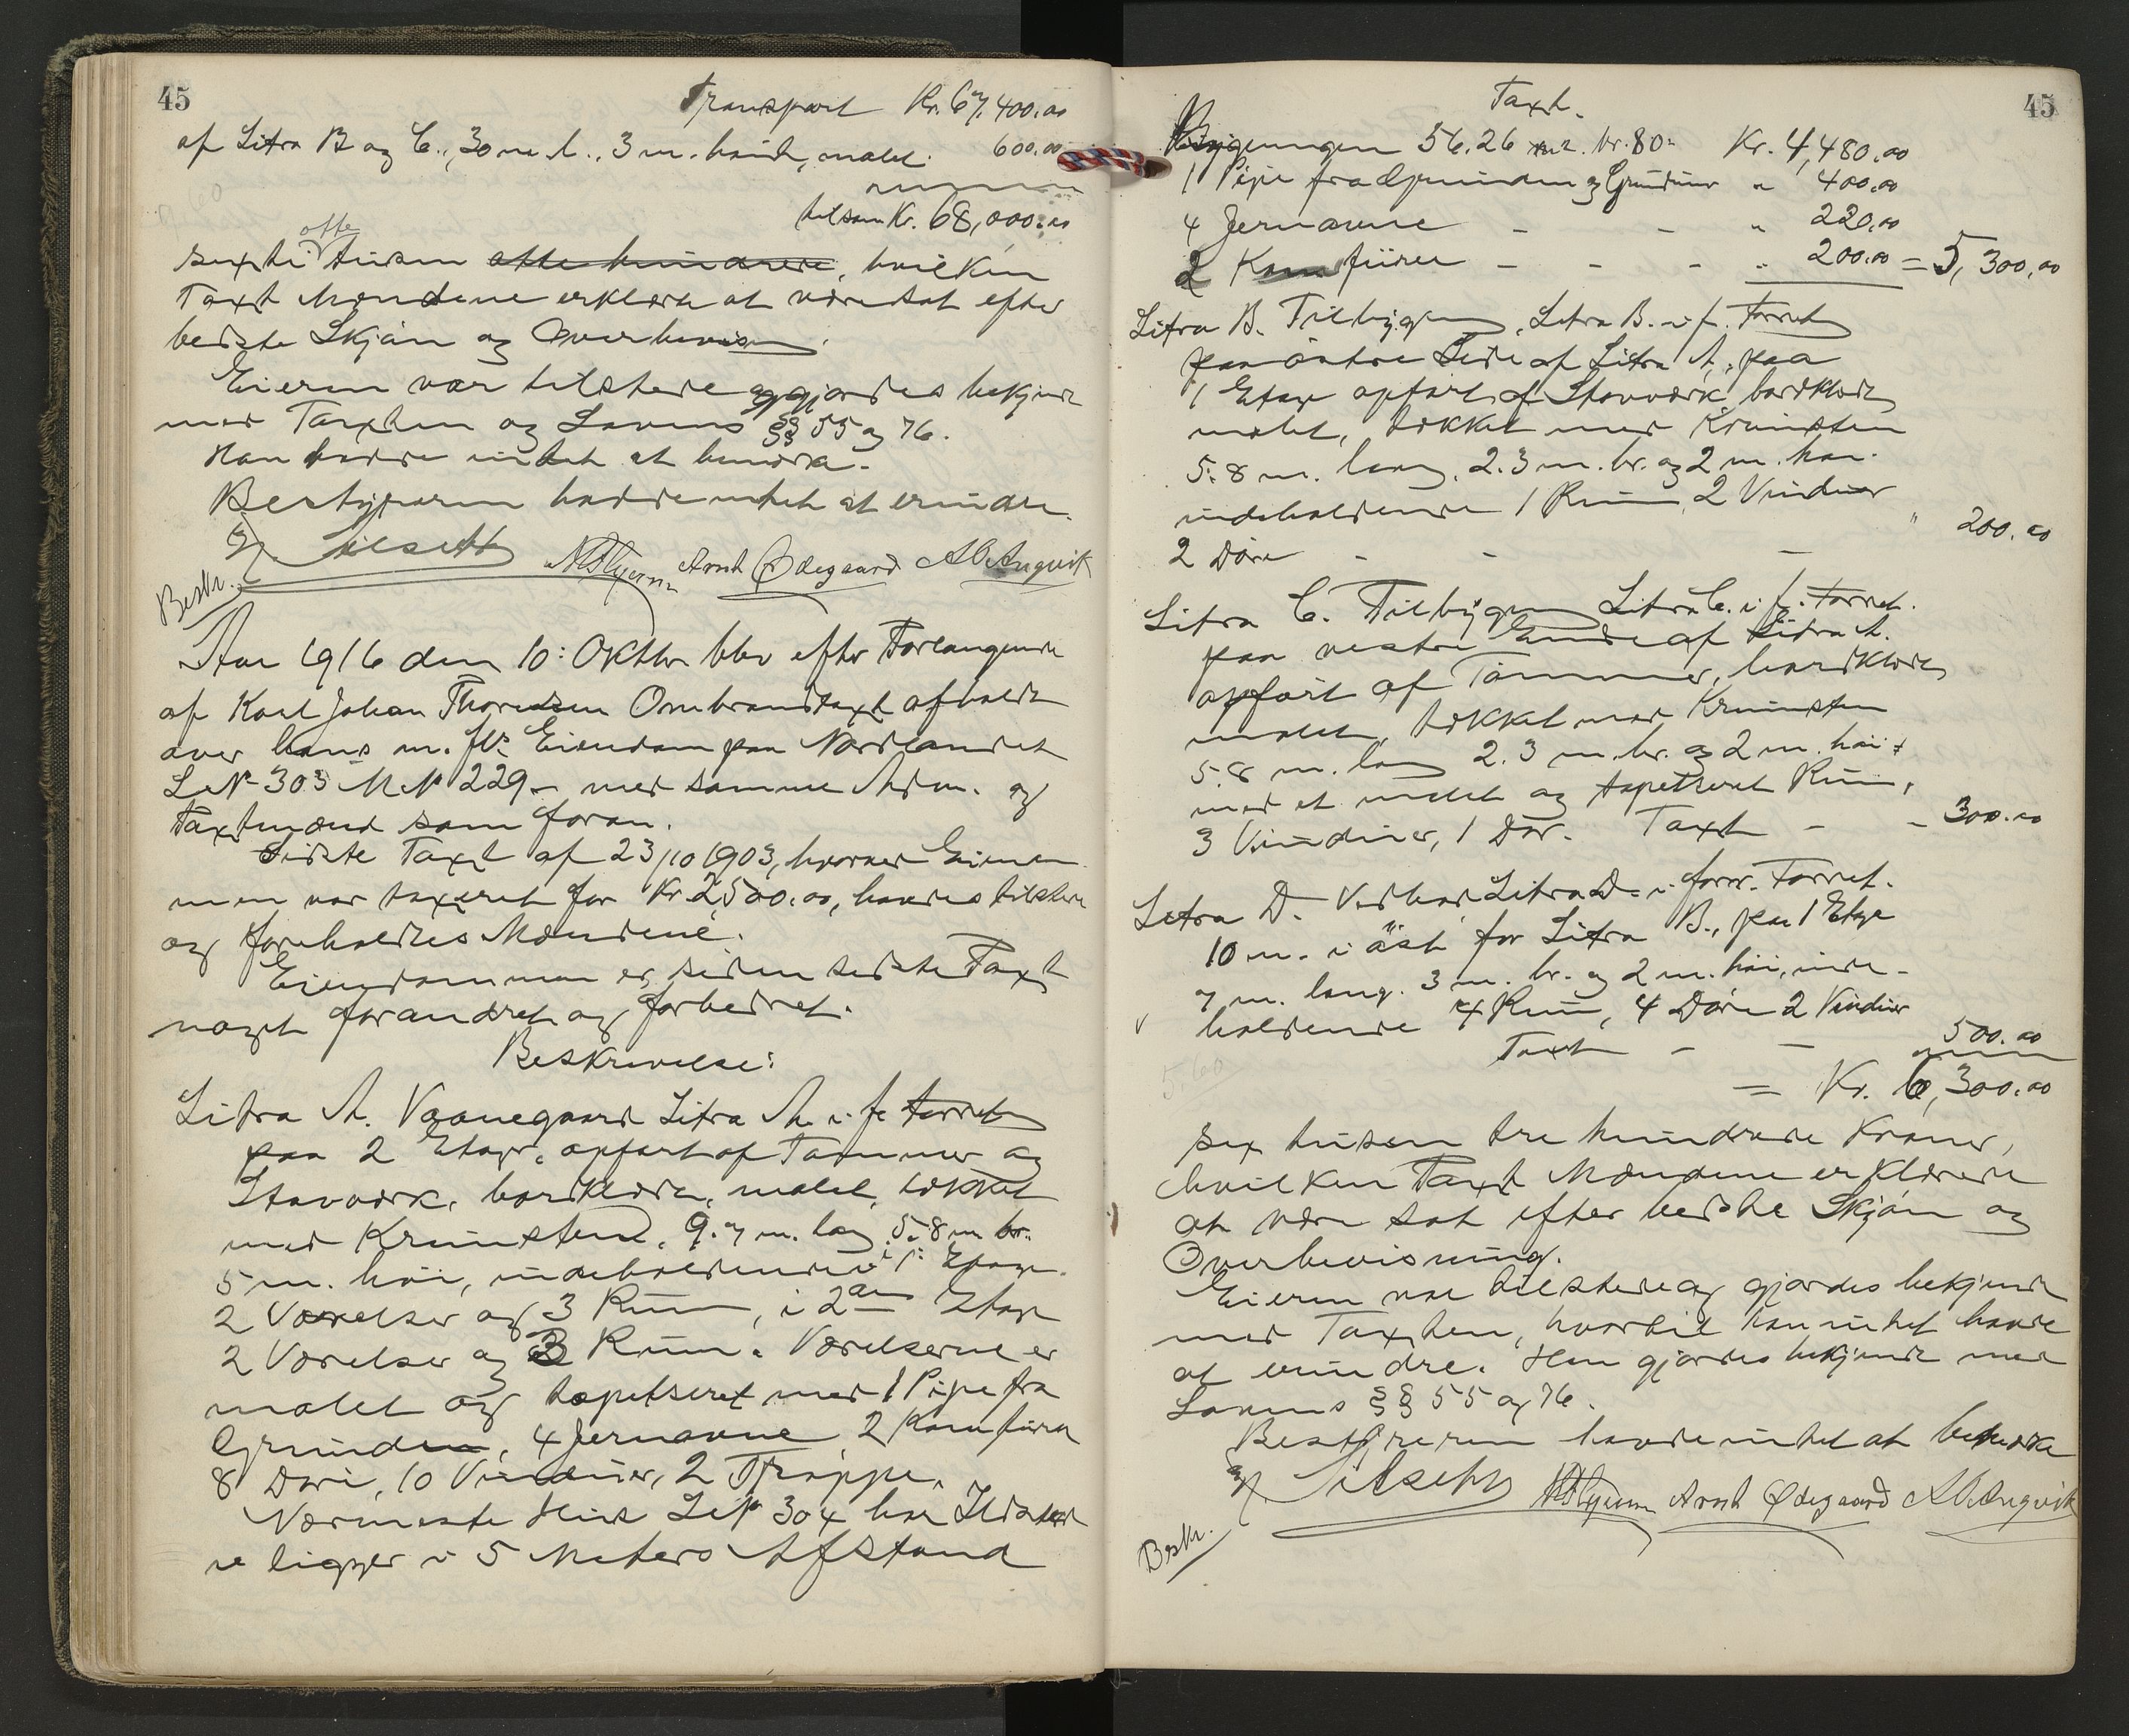 45
Transport Kr. 67,400.00
af Litra B og C., 30 m. l., 3 m. høid, malet. 600.00
tilsam Kr. 68,000.00
otte
sexti tusen otte hundrede, hvilken
Taxt Mændene erklærte at være sat efter
bedste Skjøn og Overbevisn.
Eieren var tilstede og gjordes bekjendt
med Taxten og Lovens §§ 55 og 76.
Han havde intet at bemærke.
Bestyreren havde intet at erindre.
Arnt Ødegaard A O Angvik
Beskr.
Aar 1916 den 10: Oktbr blev efter Forlangende
af Karl Johan Thoresen Ombrandtaxt afholdt
over hans m. fl. Eiendom paa Nordlandet
L.N. 303 M.N. 229 – med samme Adm. og
Taxtmænd som foran.
Sidste Taxt af 23/10 1903, hvorved Eiendom
men var taxeret for Kr. 2,500.00, havdes tilstede
og foreholdtes Mændene.
Eiendommen er siden sidste Taxt
noget forandret og forbedret.
Beskrivelse:
Litra A. Vaanegaard Litra A. i f. Forret.
paa 2 Etager, opført af Tømmer og
Stavværk, bordklædt, malet, tækket
med Krumsten, 9.7 m. lang 5.8 m br.
5 m. høi, indeholdende i 1: Etage
2 Værelser og 3 Rum, i 2den Etage
2 Værelser og 3 Rum. Værelserne er
malet og tapetseret med 1 Pipe fra
Grunden, 4 Jernovne 2 Komfürer
8 Døre, 10 Vinduer, 2 Trapper.
Nærmeste Hus L.N. 304 har Ildsted
ligger i 5 Meters Afstand
45
Taxt.
Bygningen 56.26 m2. kr. 80- Kr. 4,480.00
1 Pipe fra Grunden og Grundmur " 400.00
4 Jernovne - - " 220.00
2 Komfürer - - - " 200.00 = 5,300.00
Litra B. Tilbygn, Litra B. i f. Forret
paa østre Side af Litra A, paa
1 Etage opført af Stavværk bordklædt
malet, tækket med Krumsten
5.8 m. lang, 2.3 m. br. og 2 m. høi
indeholdende 1 Rum, 2 Vinduer
2 Døre - - - " 200.00
Litra C. Tilbygn Litra C. i f. Forret.
paa vestre Ende af Litra A.
opført af Tømmer, bordklædt
malet, tækket med Krumsten
5.8 m. lang 2.3 m. br. og 2 m. høi
med et malet og tapetseret Rum,
3 Vinduer, 1 Dør. Taxt - - 300.00
Litra D. Vedbod Litra D. i forr. Forret.
10 m. i øst for Litra B., paa 1 Etage
7 m. lang. 3 m. br. og 2 m. høi, inde-
holdende 4 Rum, 4 Døre 2 Vinduer
Taxt - - 500.00
5.60
= Kr. 6,300.00
sex tusen tre hundrede Kroner,
hvilken Taxt Mændene erklærede
at være sat efter bedste Skjøn og
Overbevisning.
Eieren var tilstede og gjordes bekjendt
med Taxten, hvortil han intet havde
at erindre. Han gjordes bekjendt med
Lovens §§ 55 og 76.
Bestyreren havde intet at bemærke
Arnt Ødegaard A O Angvik
Beskr.